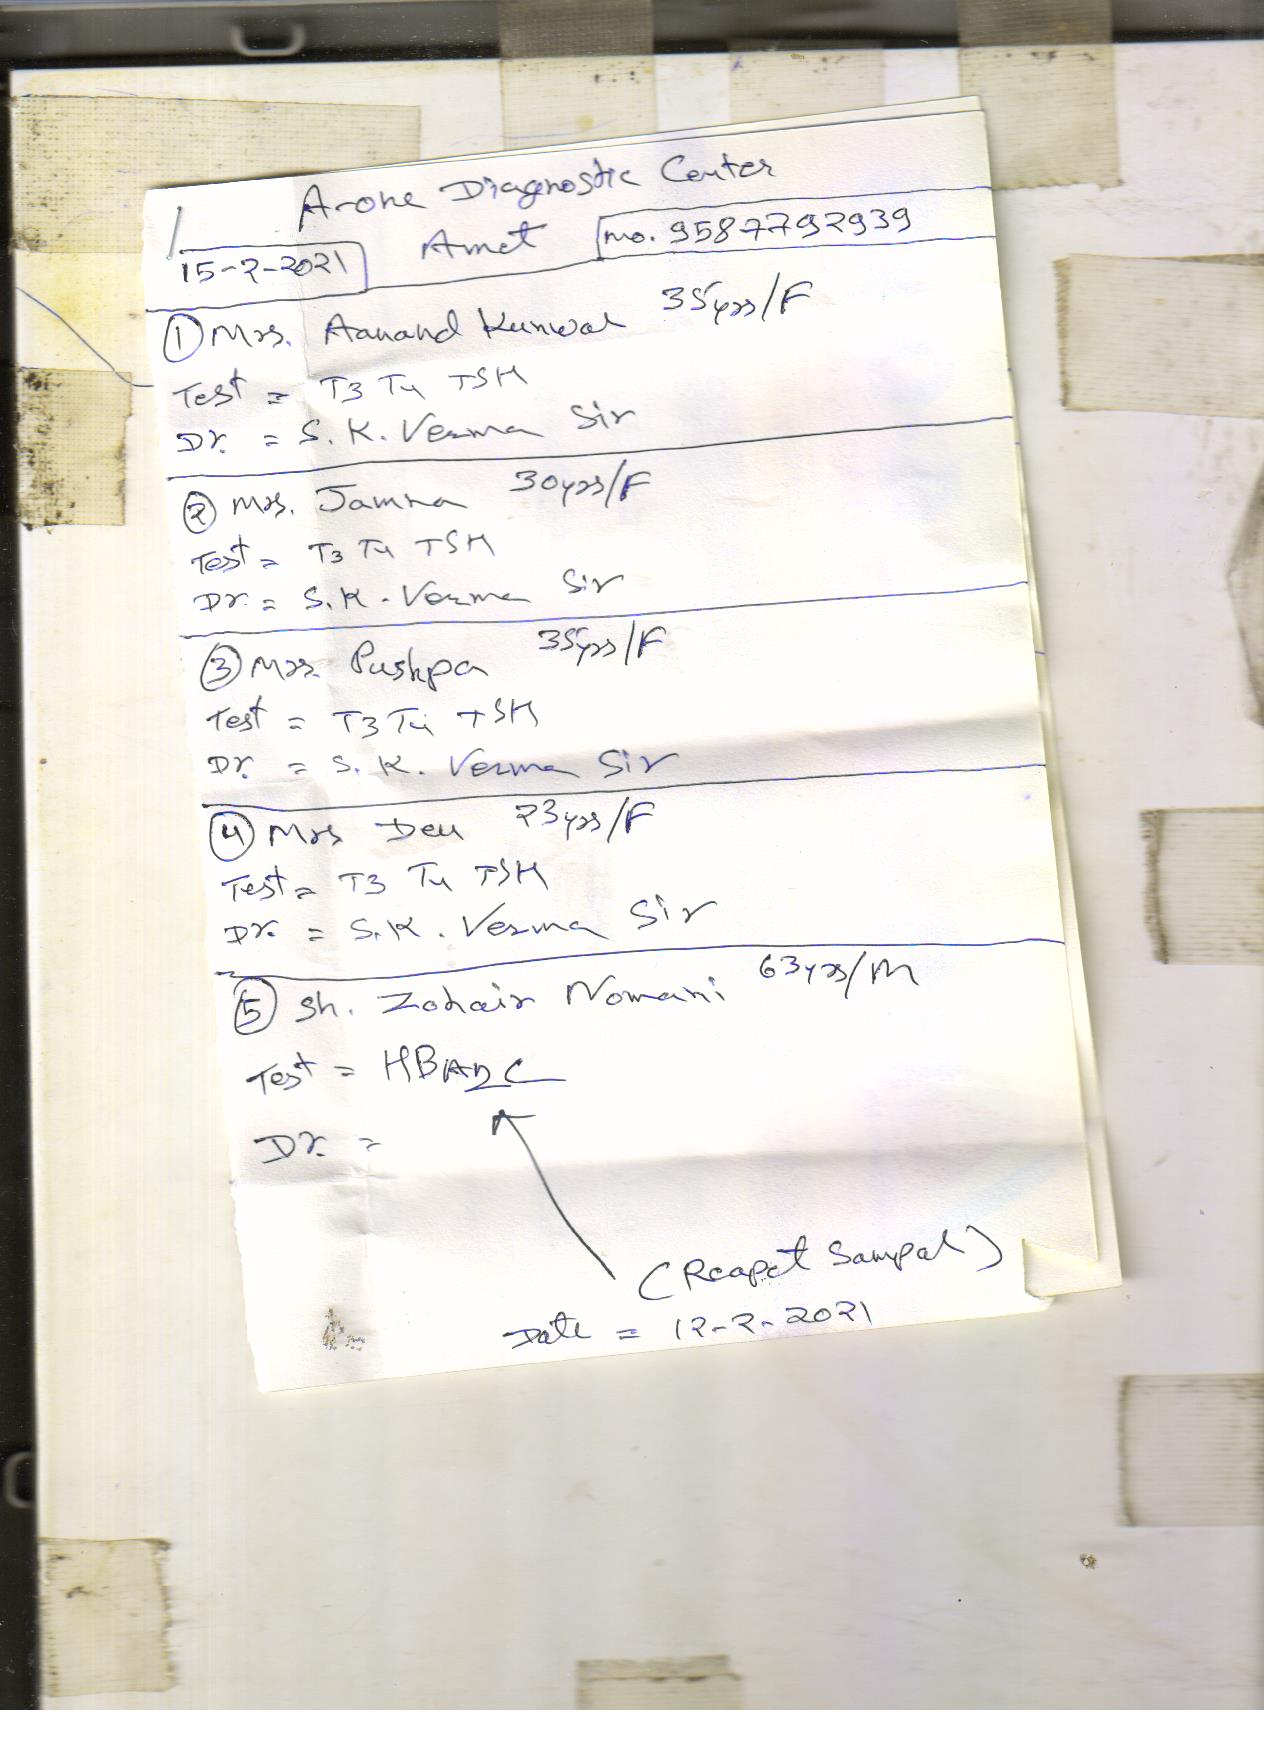 Arone Diagnostic Center
15-2-2021 Amet mo. 9587792939
① Mrs. Aanand Kunwar 35yrs/F
Test = T3 T4 TSH
Dr. = S. K. Verma Sir
② Mrs. Jamna 30yrs/F
Test = T3 T4 TSH
Dr. = S. K. Verma Sir
③ Mrs. Pushpa 35yrs/F
Test = T3 T4 TSH
Dr. = S. K. Verma Sir
④ Mrs Deu 23yrs/F
Test = T3 T4 TSH
Dr. = S. K. Verma Sir
⑤ Sh. Zohair Nomani 63yrs/M
Test = HBA1C
Dr. =
(Reapet Sampal)
Date = 12-2-2021